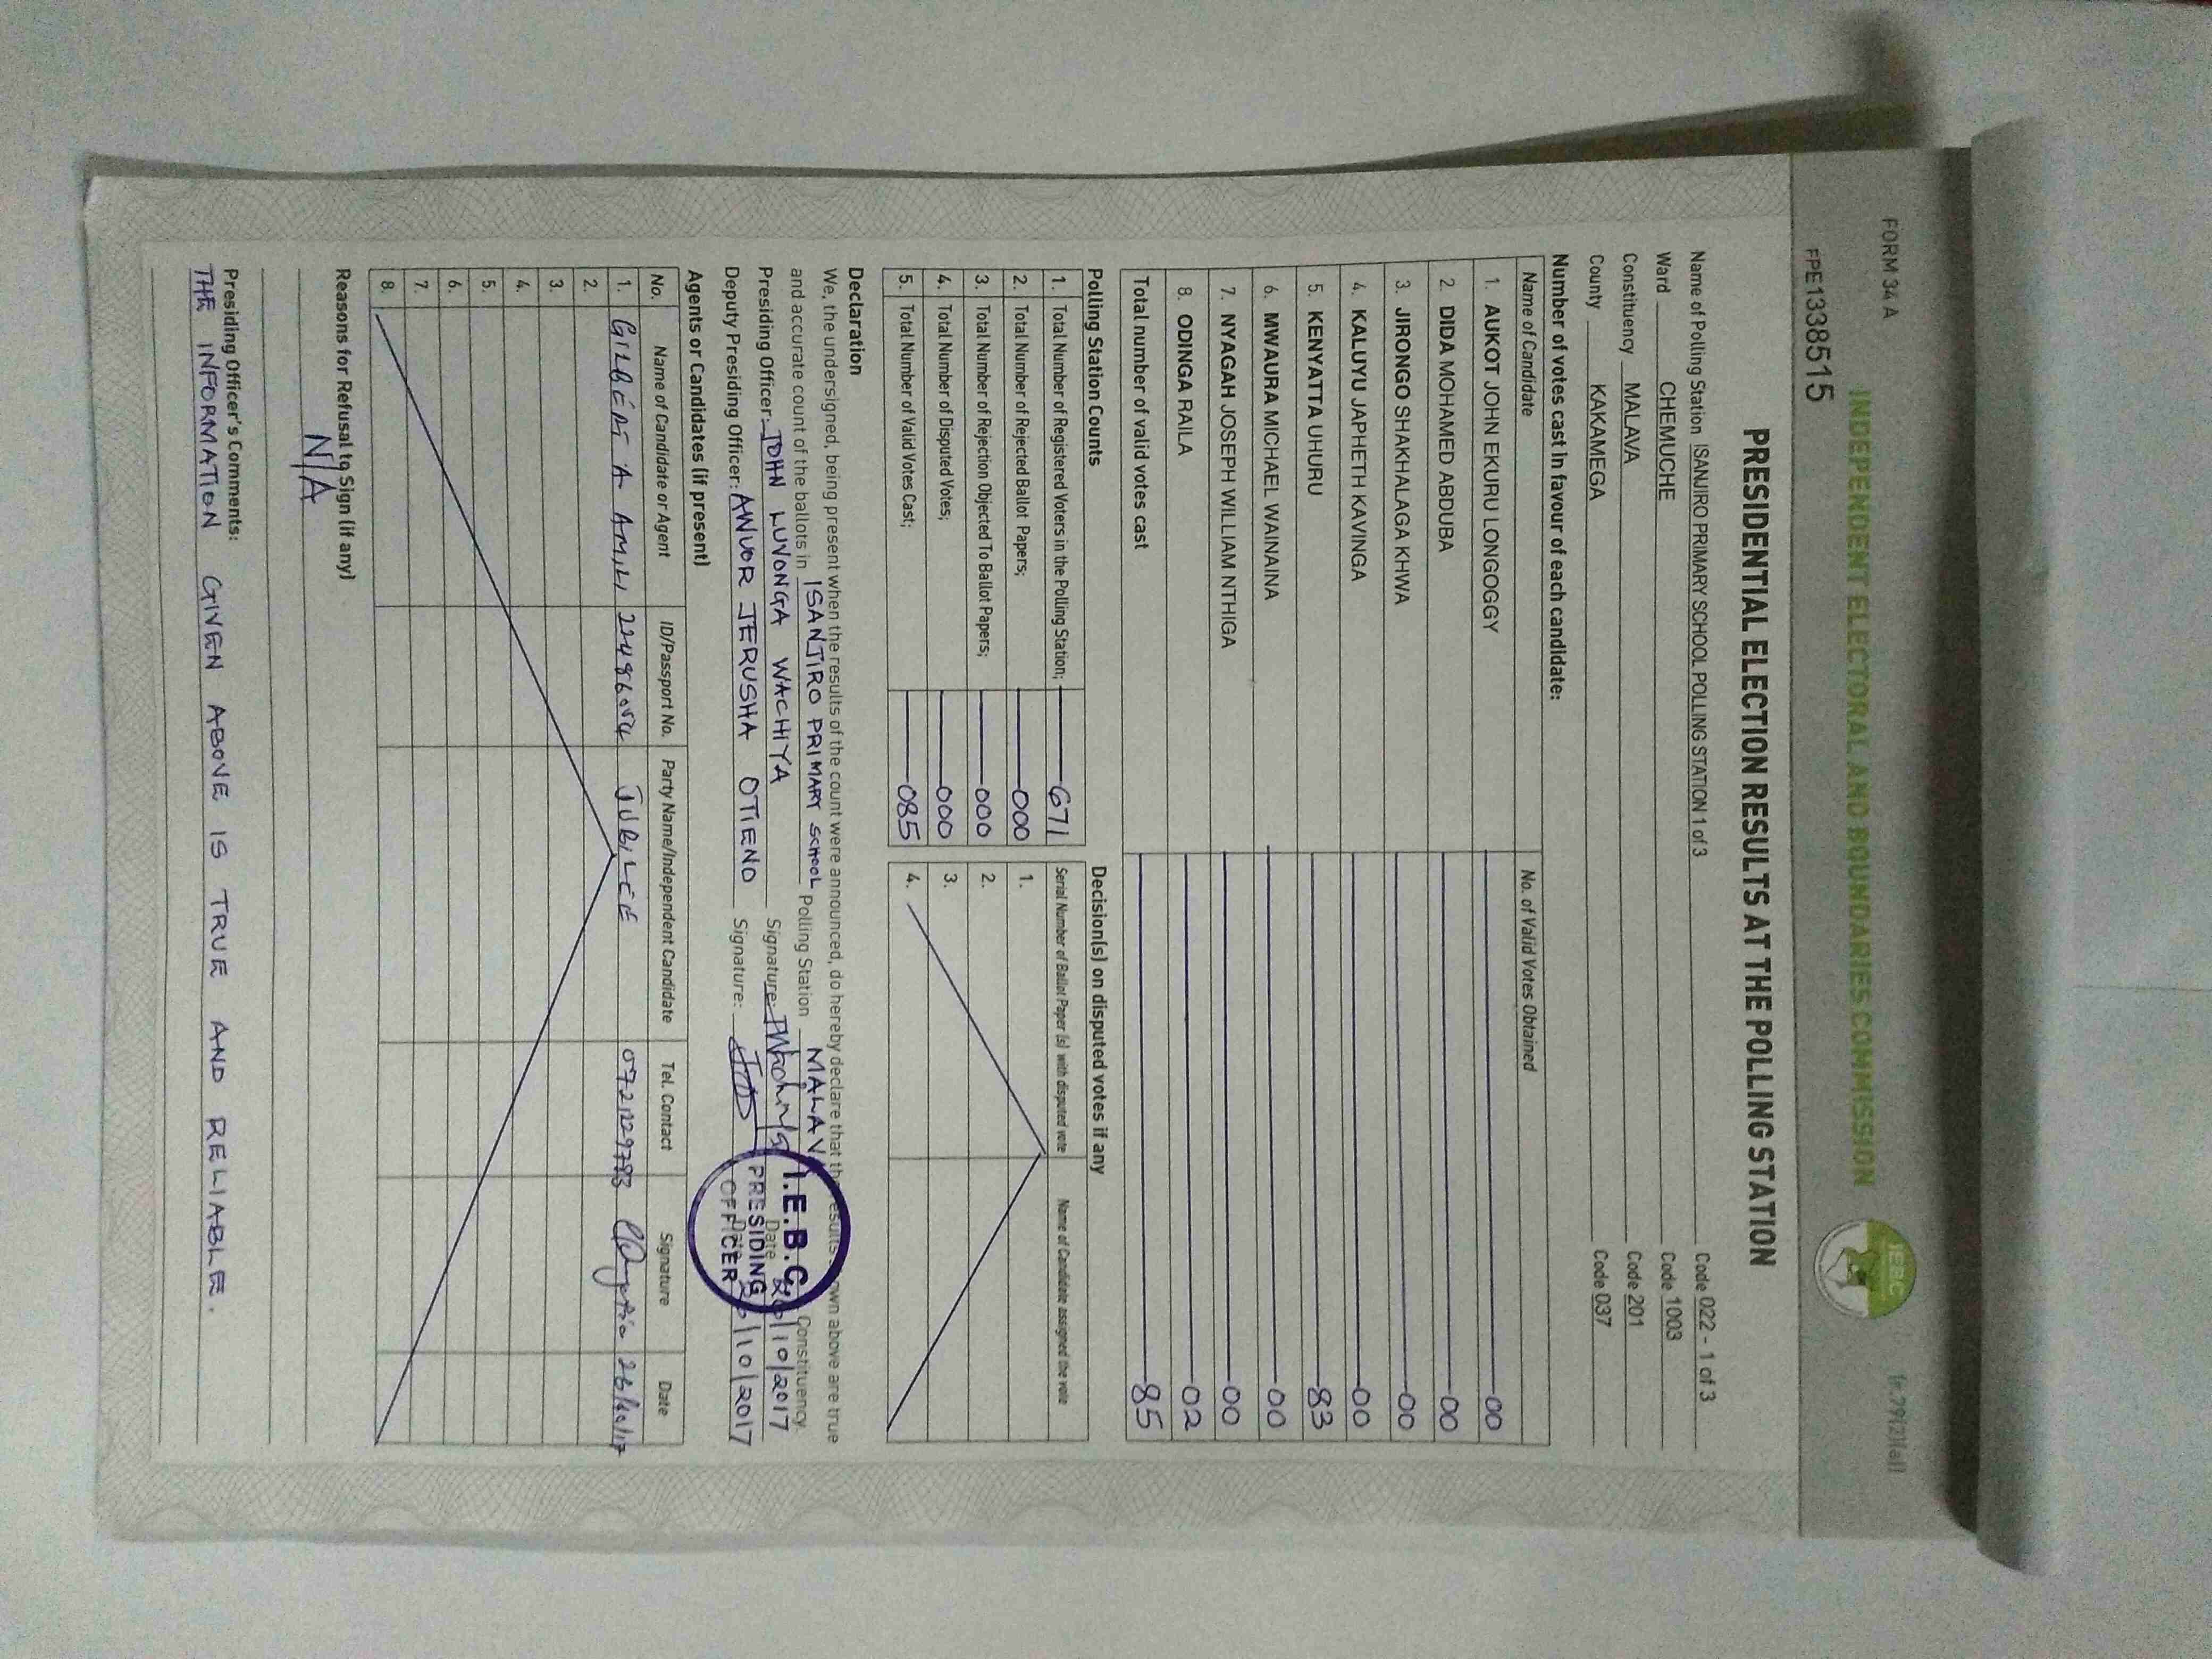 FORM 34 A
(r.79(2)(a))
INDEPENDENT ELECTORAL AND BOUNDARIES COMMISSION
IEBC
FPE1338515
PRESIDENTIAL ELECTION RESULTS AT THE POLLING STATION
Name of Polling Station ISANJIRO PRIMARY SCHOOL POLLING STATION 1 of 3 Code 022 - 1 of 3
Ward CHEMUCHE Code 1003
Constituency MALAVA Code 201
County KAKAMEGA Code 037
Number of votes cast in favour of each candidate:
Name of Candidate No. of Valid Votes Obtained
1. AUKOT JOHN EKURU LONGOGGY 00
2. DIDA MOHAMED ABDUBA 00
3. JIRONGO SHAKHALAGA KHWA 00
4. KALUYU JAPHETH KAVINGA 00
5. KENYATTA UHURU 83
6. MWAURA MICHAEL WAINAINA 00
7. NYAGAH JOSEPH WILLIAM NTHIGA 00
8. ODINGA RAILA 02
Total number of valid votes cast 85
Polling Station Counts
1. Total Number of Registered Voters in the Polling Station; 671
2. Total Number of Rejected Ballot Papers; 000
3. Total Number of Rejection Objected To Ballot Papers; 000
4. Total Number of Disputed Votes; 000
5. Total Number of Valid Votes Cast; 085
Decision(s) on disputed votes if any
Serial Number of Ballot Paper (s) with disputed vote Name of Candidate assigned the vote
1.
2.
3.
4.
Declaration
We, the undersigned, being present when the results of the count were announced, do hereby declare that the results shown above are true
and accurate count of the ballots in ISANJIRO PRIMARY SCHOOL Polling Station MALAVA Constituency.
Presiding Officer: JOHN LUVONGA WACHIYA Signature: Date 26/10/2017
Deputy Presiding Officer: AWUOR JERUSHA OTIENO Signature: Date 26/10/2017
I.E.B.C.
PRESIDING
OFFICER
Agents or Candidates (if present)
No. Name of Candidate or Agent ID/Passport No. Party Name/Independent Candidate Tel. Contact Signature Date
1. GILBERT A AMILI JUBILEE 26/10/17
2.
3.
4.
5.
6.
7.
8.
Reasons for Refusal to Sign (if any)
N/A
Presiding Officer's Comments:
THE INFORMATION GIVEN ABOVE IS TRUE AND RELIABLE.